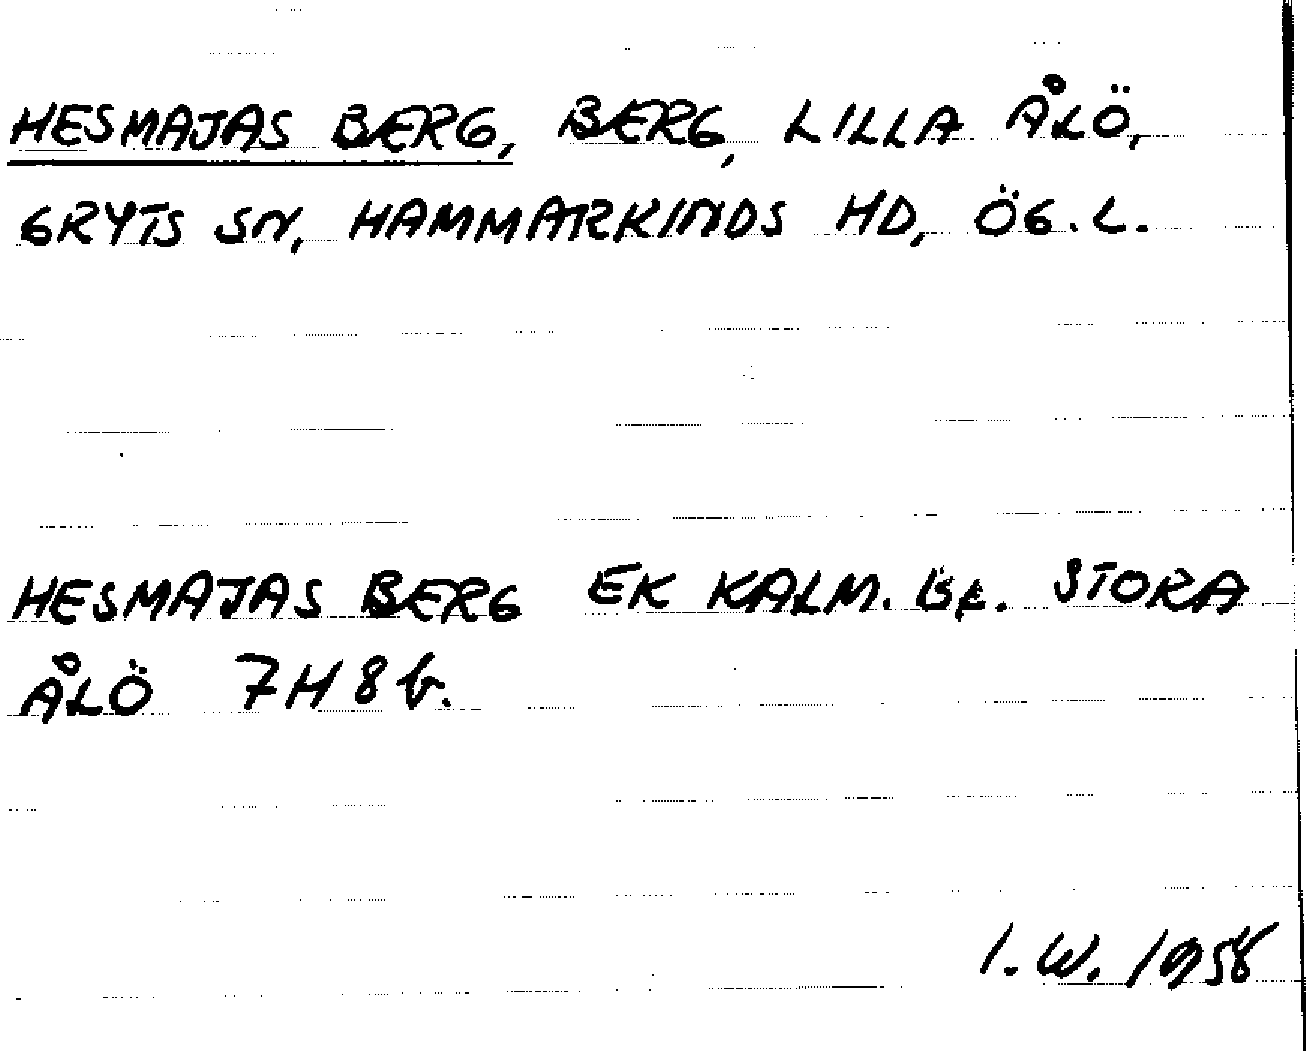 HESMAJAS BERG, BERG, LILLA ÅLÖ,
GRYTS SN, HAMMARKINDS HD, ÖG.L.
HESMAJAS BERG EK KALM. STORA
ÅLÖ 7H8b.
I.W. 1958